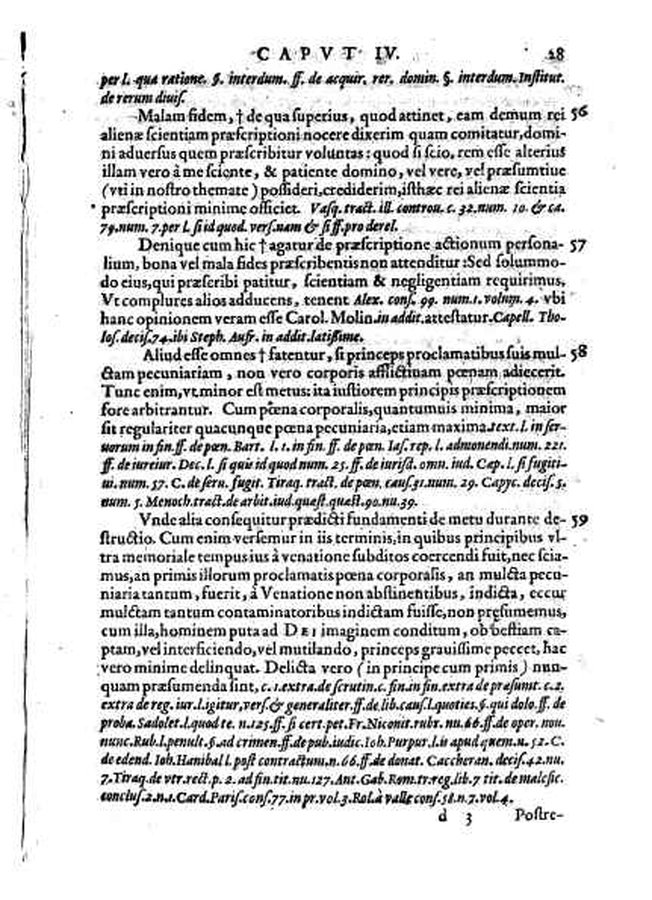 CAPVT IV. 28
per l. qua ratione. §. interdum. ff. de acquir. rer. domin. §. interdum. Institut.
de rerum diuis.
Malam fidem, † de qua superius, quod attinet, eam demum rei 56
alienæ scientiam præscriptioni nocere dixerim quam comitatur, domi-
ni aduersus quem præscribitur voluntas: quod si scio, rem esse alterius
illam vero à me sciente, & patiente domino, vel vere, vel præsumtiue
(vti in nostro themate) possideri, crediderim, isthæc rei alienæ scientia
præscriptioni minime officiet. Vasq. tract. ill. controu. c. 32. num. 10. & ca.
79. num. 7. per l. si id quod. vers. nam & si ff. pro derel.
Denique cum hic † agatur de præscriptione actionum persona- 57
lium, bona vel mala fides præscribentis non attenditur: Sed solummo-
do eius, qui præscribi patitur, scientiam & negligentiam requirimus,
Vt complures alios adducens, tenent Alex. cons. 99. num. 1. volum. 4. vbi
hanc opinionem veram esse Carol. Molin. in addit. attestatur. Capell. Tho-
los. decis. 74. ibi Steph. Aufr. in addit. latissime.
Aliud esse omnes † fatentur, si princeps proclamatibus suis mul- 58
ctam pecuniariam, non vero corporis afflictiuam pœnam adiecerit.
Tunc enim, vt minor est metus: ita iustiorem principis præscriptionem
fore arbitrantur. Cum pœna corporalis, quantumuis minima, maior
sit regulariter quacunque pœna pecuniaria, etiam maxima. text. l. in ser-
uorum in fin. ff. de pœn. Bart. l. 1. in fin. ff. de pœn. Ias. rep. l. admonendi. num. 221.
ff. de iureiur. Dec. l. si quis id quod num. 25. ff. de iurisd. omn. iud. Cap. l. si fugiti-
ui. num. 57. C. de seru. fugit. Tiraq. tract. de pœn. caus. 31. num. 29. Capyc. decis. 5.
num. 5. Menoch. tract. de arbit. iud. quæst. quæst. 90. nu. 39.
Vnde alia consequitur prædicti fundamenti de metu durante de- 59
structio. Cum enim versemur in iis terminis, in quibus principibus vl-
tra memoriale tempus ius à venatione subditos coercendi fuit, nec scia-
mus, an primis illorum proclamatis pœna corporalis, an mulcta pecu-
niaria tantum, fuerit, à Venatione non abstinentibus, indicta, eccur
mulctam tantum contaminatoribus indictam fuisse, non præsumemus,
cum illa, hominem puta ad DEI imaginem conditum, ob bestiam ca-
ptam, vel interficiendo, vel mutilando, princeps grauissime peccet, hac
vero minime delinquat. Delicta vero (in principe cum primis) nun-
quam præsumenda sint, c. 1. extra de scrutin. c. fin. in fin. extra de præsumt. c. 2.
extra de reg. iur. l. igitur, vers. & generaliter. ff. de lib. caus. l. quoties. §. qui dolo. ff. de
proba. Sadolet. l. quod te. n. 125. ff. si cert. pet. Fr. Niconit. rubr. nu. 66. ff. de oper. nou.
nunc. Rub. l. penult. §. ad crimen. ff. de pub. iudic. Ioh. Purpur. l. is apud quem. n. 52. C.
de edend. Ioh. Hanibal l. post contractum. n. 66. ff. de donat. Caccheran. decis. 42. nu.
7. Tiraq. de vtr. rect. p. 2. ad fin. tit. nu. 127. Ant. Gab. Rom. tr. reg. lib. 7 tit. de malefic.
conclus. 2. n. 1. Card. Paris. cons. 77. in pr. vol. 3. Rol. à valle cons. 58. n. 7. vol. 4.
d 3 Postre-